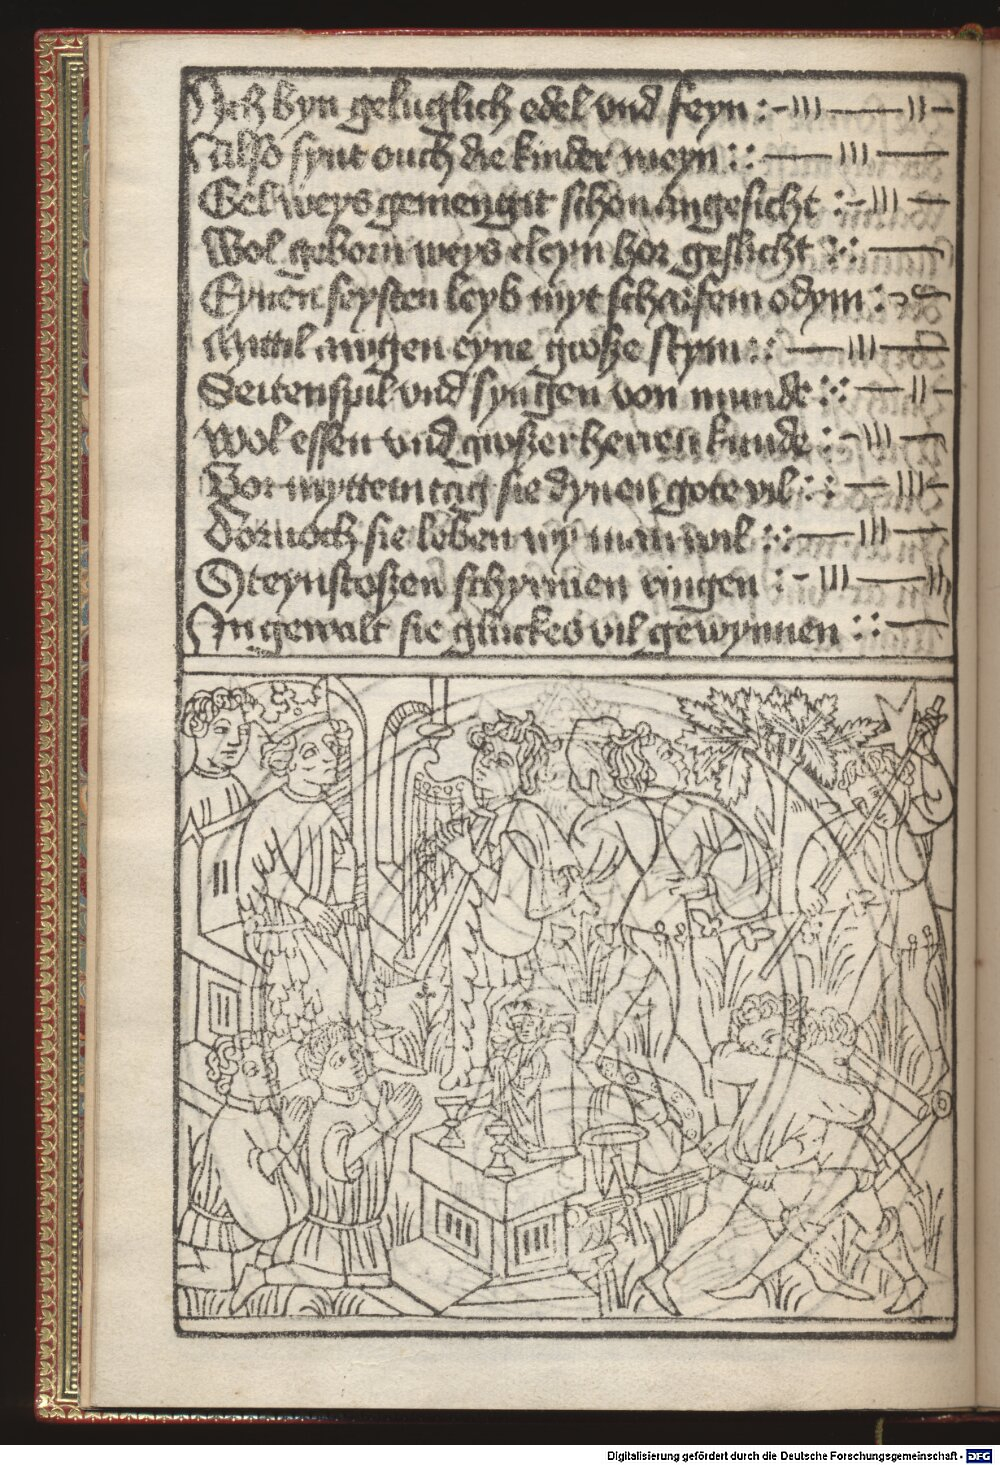 Ich byn geluglich edel vnd feyn :
Also synt ouch die kinder meyn ::
Gel weys gemengit schon angesicht :
Wol geborn weys cleyn hor geslicht ::
Eynen feysten leyb myt scharfem odym :
Mittil awgen eyne große stym ::
Seitenspil vnd syngen von munde ::
Wol essen vnd großer herren kunde :
Vor myttem tag sie dynen gote vil ::
Dornoch sie leben wy man wil ::
Steynstoßen schyrmen ringen :
In gewalt sie gluckes vil gewynnen ::
Digitalisierung gefördert durch die Deutsche Forschungsgemeinschaft - DFG